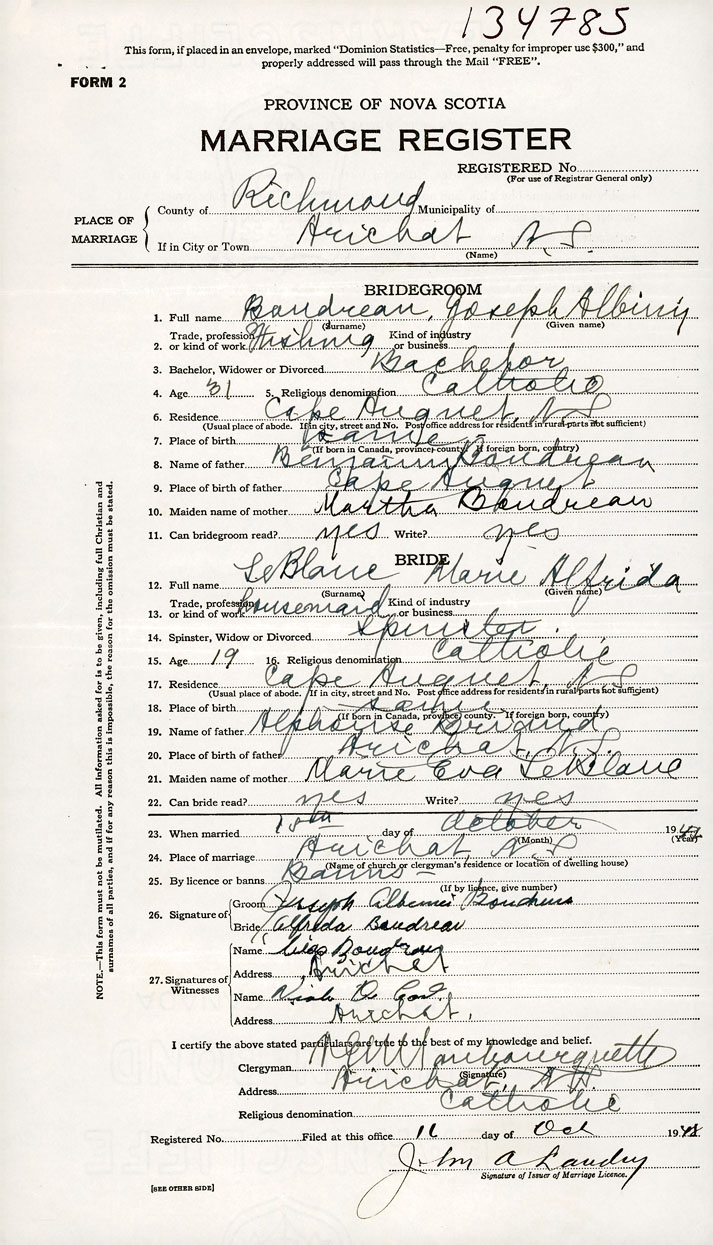 134785
This form, if placed in an envelope, marked "Dominion Statistics—Free, penalty for improper use $300," and
properly addressed will pass through the Mail "FREE".
FORM 2
PROVINCE OF NOVA SCOTIA
MARRIAGE REGISTER
REGISTERED No.
(For use of Registrar General only)
PLACE OF MARRIAGE
County of Richmond Municipality of
If in City or Town Arichat N.S.
(Name)
BRIDEGROOM
1. Full name Boudreau, Joseph Albiny
(Surname) (Given name)
2. Trade, profession or kind of work Fishing Kind of industry or business
3. Bachelor, Widower or Divorced Bachelor
4. Age 31 5. Religious denomination Catholic
6. Residence Cape Auguet, N.S.
(Usual place of abode. If in city, street and No. Post office address for residents in rural parts not sufficient)
7. Place of birth same
(If born in Canada, province, county. If foreign born, country)
8. Name of father Benjamin Boudreau
9. Place of birth of father Cape Auguet
10. Maiden name of mother Martha Boudreau
11. Can bridegroom read? yes Write? yes
BRIDE
12. Full name LeBlanc Marie Alfrida
(Surname) (Given name)
13. Trade, profession or kind of work housemaid Kind of industry or business
14. Spinster, Widow or Divorced Spinster
15. Age 19 16. Religious denomination Catholic
17. Residence Cape Auguet, N.S.
(Usual place of abode. If in city, street and No. Post office address for residents in rural parts not sufficient)
18. Place of birth same
(If born in Canada, province, county. If foreign born, country)
19. Name of father Alphonse
20. Place of birth of father Arichat, N.S.
21. Maiden name of mother Marie Eva LeBlanc
22. Can bride read? yes Write? yes
23. When married day of October 19
(Month) (Year)
24. Place of marriage Arichat, N.S.
(Name of church or clergyman's residence or location of dwelling house)
25. By licence or banns Banns
(If by licence, give number)
26. Signature of
Groom Joseph Boudreau
Bride Alfreda Boudreau
27. Signatures of Witnesses
Name Boudreau
Address Arichat
Name
Address Arichat,
I certify the above stated particulars are true to the best of my knowledge and belief.
Clergyman
(Signature)
Address Arichat, N.S.
Religious denomination Catholic
Registered No. Filed at this office 11 day of Oct 19
John A Landry
Signature of Issuer of Marriage Licence.
[SEE OTHER SIDE]
NOTE.—This form must not be mutilated. All information asked for is to be given, including full Christian and
surnames of all parties, and if for any reason this is impossible, the reason for the omission must be stated.